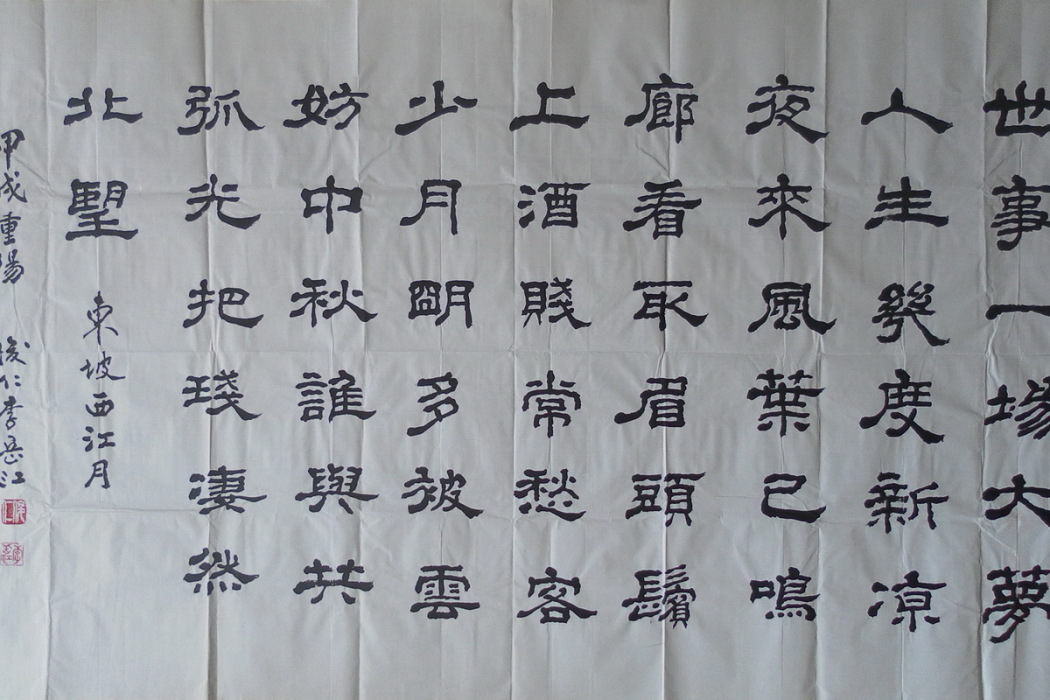 世事一場大夢
人生幾度新涼
夜來風葉已鳴
廊看取眉頭鬢
上酒賤常愁客
少月朙多被雲
妨中秋誰與共
孤光把琖淒然
北朢
東坡西江月
甲戌重陽 仁李岳江